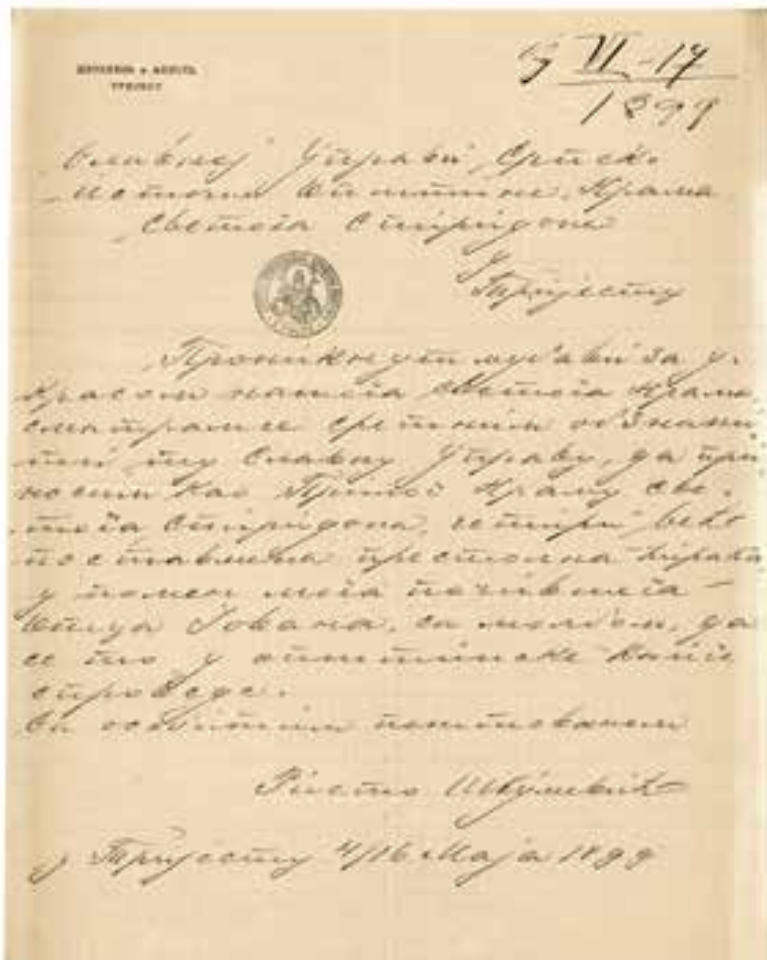 VI - 17
1899
Славној Управи Српско
Источне Општине, Храма
Светога Спиридона
у
Тријесту
Проникнути љубави за у-
красом нашега светога храма,
сматрам се сретним обзнани
ти ту Славну Управу, да при
носим као Прилог Храму Све-
тога Спиридона, четири већ
постављена престолна
у помен мога почившега
Оца Јована, са молбом, да
се то у општинске књиге
спроведе.
Са особитим поштовањем
Ристо Шкуљевић
у Тријесту 4/16 Маја 1899